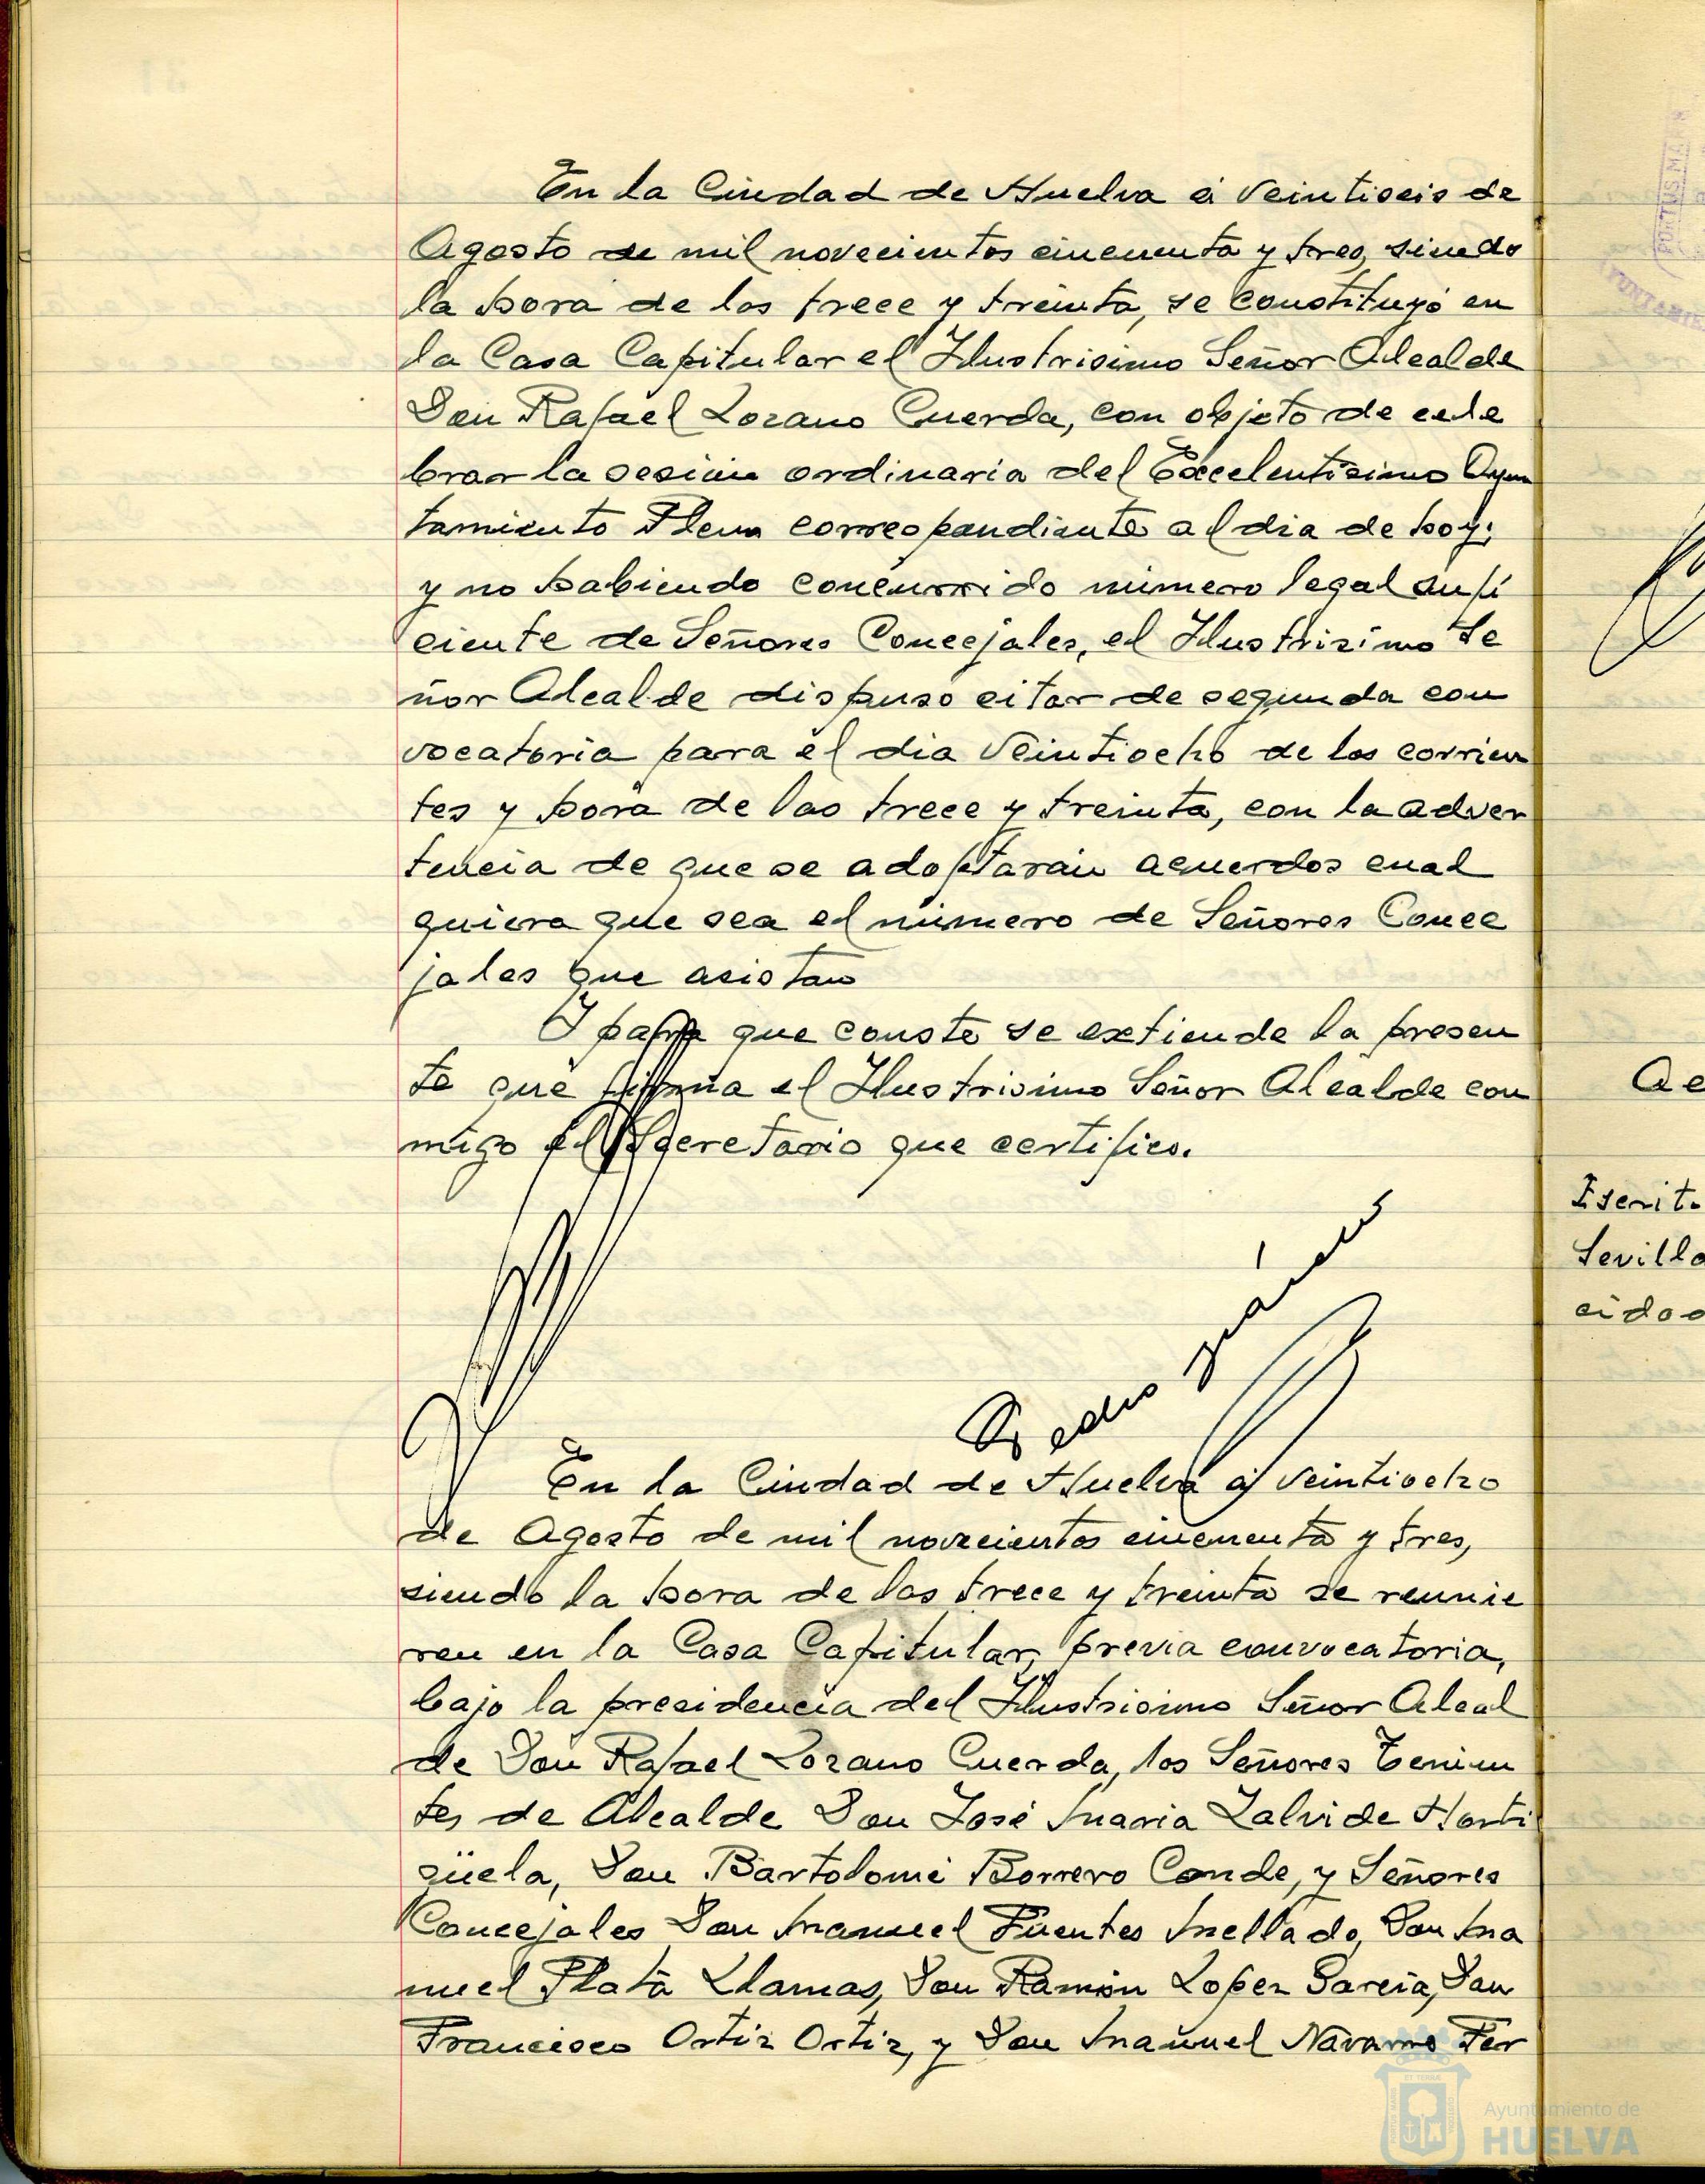 En la Ciudad de Huelva á veintiseis de
Agosto de mil novecientos cincuenta y tres, siendo
la hora de las trece y treinta, se constituyó en
la Casa Capitular el Ilustrisimo Señor Alcalde
Don Rafael Lozano Cuerda, con objeto de cele
brar la sesión ordinaria del Excelentisimo Ayun
tamiento Pleno correspondiente al dia de hoy;
y no habiendo concurrido número legal sufi
ciente de Señores Concejales, el Ilustrisimo Se
ñor Alcalde dispuso citar de segunda con
vocatoria para el dia veintiocho de los corrien
tes y hora de las trece y treinta, con la adver
tencia de que se adoptarán acuerdos cual
quiera que sea el número de Señores Conce
jales que asistan
Y para que conste se extiende la presen
te que firma el Ilustrisimo Señor Alcalde con
migo el Secretario que certifico.
Pedro
En la Ciudad de Huelva á veintiocho
de Agosto de mil novecientos cincuenta y tres,
siendo la hora de las trece y treinta se reunie
ron en la Casa Capitular, previa convocatoria,
bajo la presidencia del Ilustrisimo Señor Alcal
de Don Rafael Lozano Cuerda, los Señores Tenien
tes de Alcalde Don José Maria Zalvide Horti
güela, Don Bartolomé Borrero Conde, y Señores
Concejales Don Manuel Fuentes Mellado, Don Ma
nuel Plata Llamas, Don Ramón Lopez Garcia, Don
Francisco Ortiz Ortiz, y Don Manuel Navarro Fer
Escrit.
Sevilla
cidos
Ayuntamiento de
HUELVA